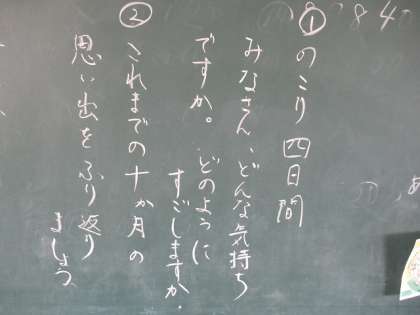 ①のこり四日間
みなさん、どんな気持ち
ですか。どのように
すごしますか。
②これまでの十か月の
思い出をふり返り
ましょう
8 4